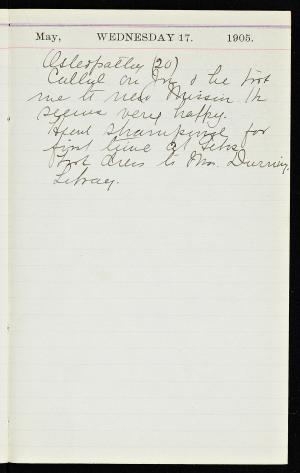 May, WEDNESDAY 17. 1905.
Osteopathy (20)
Called on Irv & he took
me to new Mission He
seems very happy.
Head shampooed for
first time at
Took dress to Mrs.
Library.